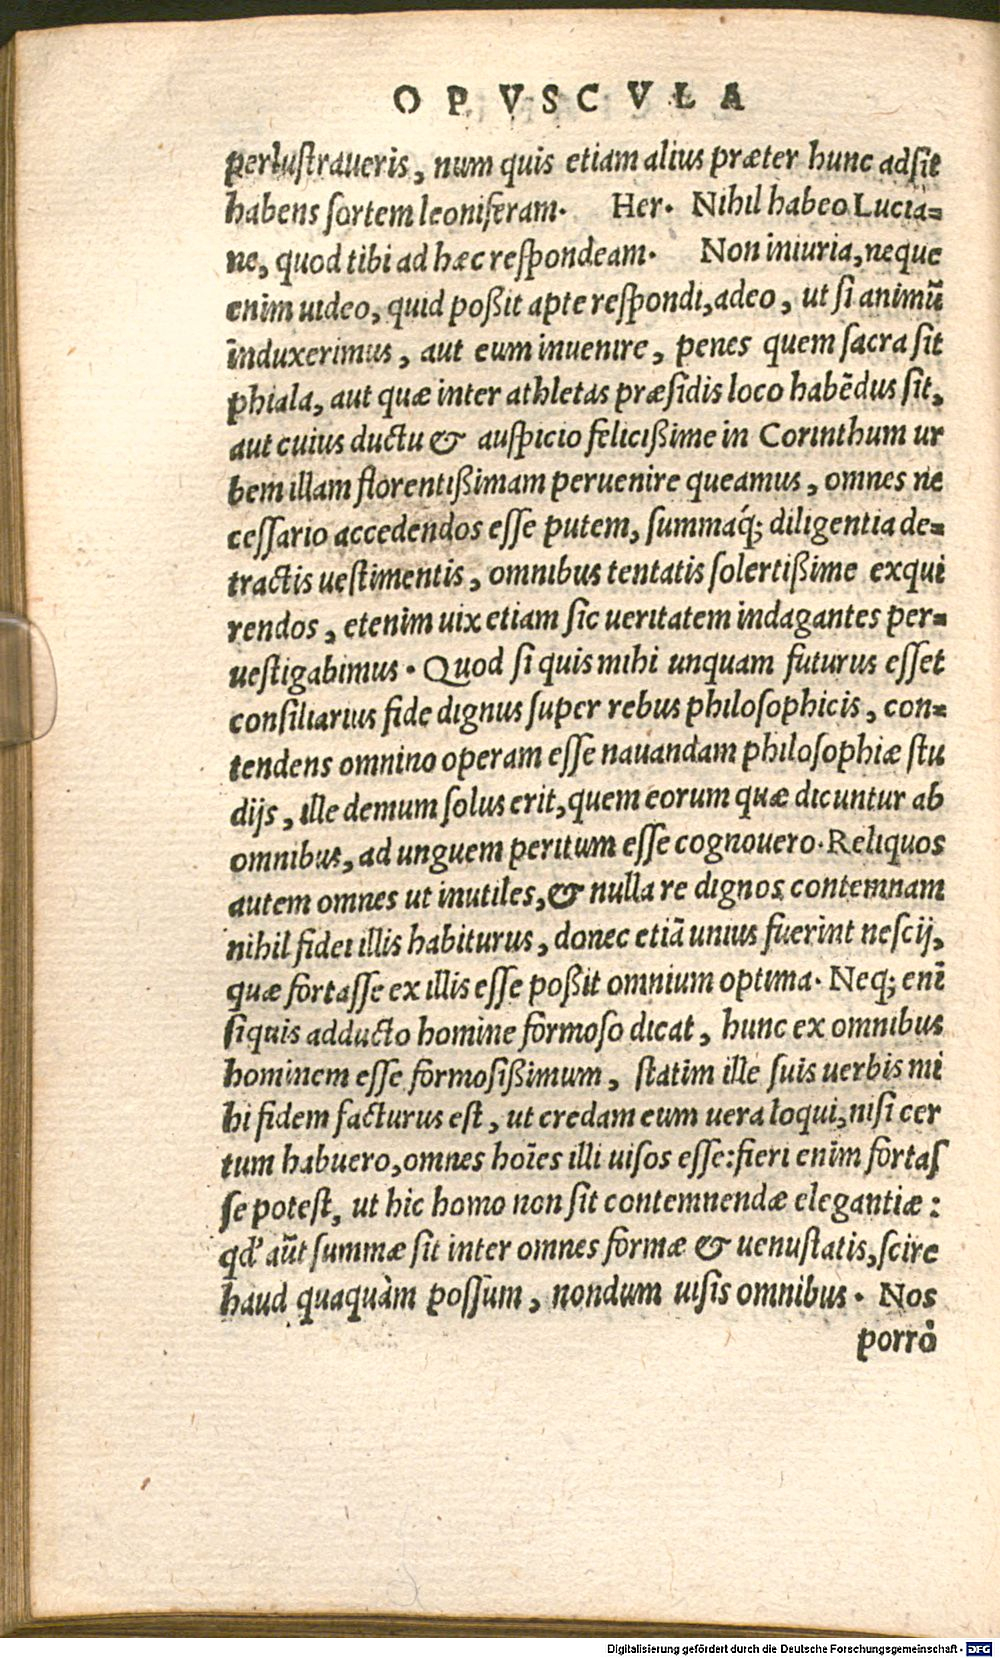 OPVSCVLA
perlustraueris, num quis etiam alius præter hunc adsit
habens sortem leoniferam. Her. Nihil habeo Lucia=
ne, quod tibi ad hæc respondeam. Non iniuria, neque
enim uideo, quid poßit apte respondi, adeo, ut si animū
induxerimus, aut eum inuenire, penes quem sacra sit
phiala, aut quæ inter athletas præsidis loco habēdus sit,
aut cuius ductu & auspicio felicißime in Corinthum ur
bem illam florentißimam peruenire queamus, omnes ne
cessario accedendos esse putem, summaq́; diligentia de=
tractis uestimentis, omnibus tentatis solertißime exqui
rendos, etenim uix etiam sic ueritatem indagantes per=
uestigabimus. Quod si quis mihi unquam futurus esset
consiliarius fide dignus super rebus philosophicis, con=
tendens omnino operam esse nauandam philosophiæ stu
dijs, ille demum solus erit, quem eorum quæ dicuntur ab
omnibus, ad unguem peritum esse cognouero. Reliquos
autem omnes ut inutiles, & nulla re dignos contemnam
nihil fidei illis habiturus, donec etiā unius fuerint nescij,
quæ fortasse ex illis esse poßit omnium optima. Neq; enī
siquis adducto homine formoso dicat, hunc ex omnibus
hominem esse formosißimum, statim ille suis uerbis mi
hi fidem facturus est, ut credam eum uera loqui, nisi cer
tum habuero, omnes hoīes illi uisos esse: fieri enim fortas
se potest, ut hic homo non sit contemnendæ elegantiæ:
qd' aūt summæ sit inter omnes formæ & uenustatis, scire
haud quaquàm possum, nondum uisis omnibus. Nos
porrò
Digitalisierung gefördert durch die Deutsche Forschungsgemeinschaft - DFG